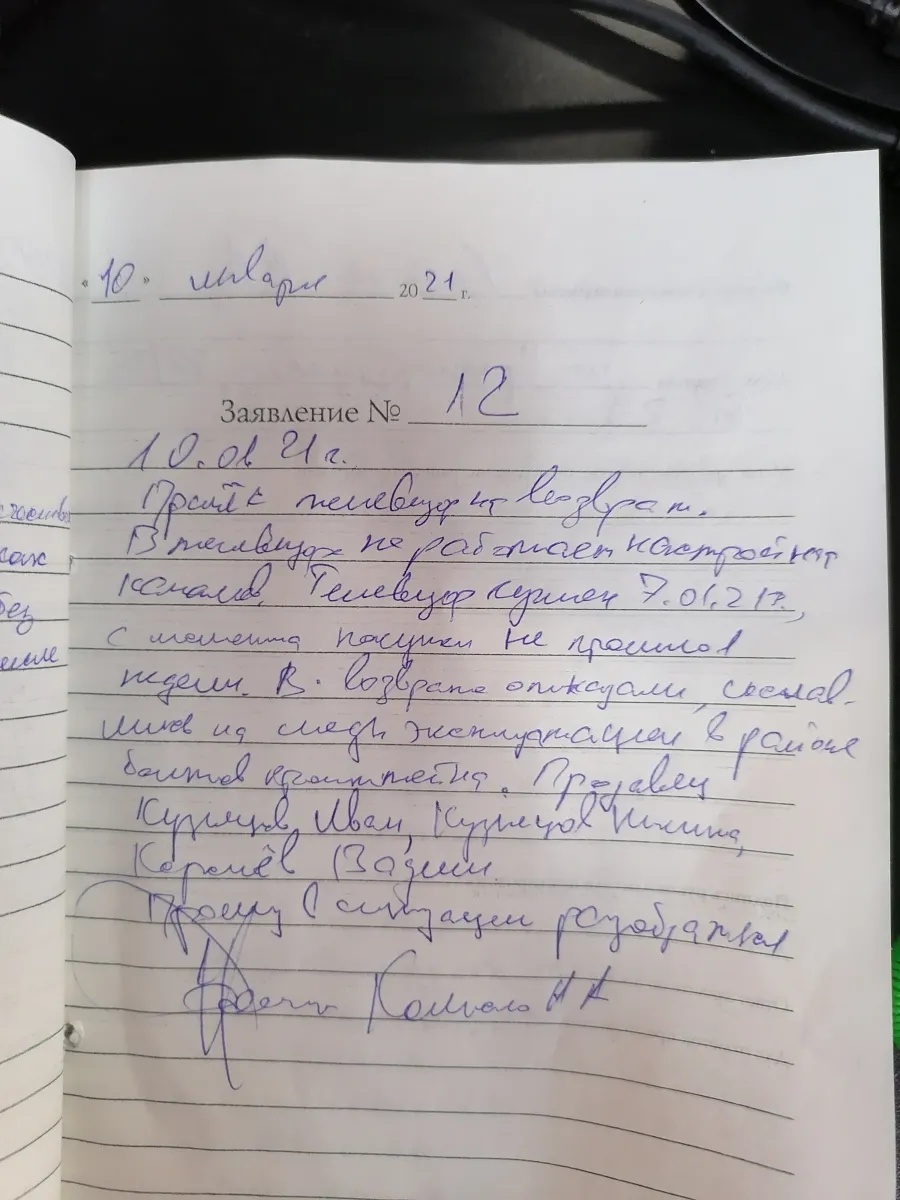 « 10 » января 2021 г.
Заявление № 12
10.01 21 г.
телевизор на возврат.
В телевизоре не работает настройка
каналов. Телевизор куплен 7.01.21г.,
с момента покупки не прошло
недели. В возврате отказали, сослав-
шись на следы эксплуатации в районе
болтов кронштейна. Продавец
Кузнецов Иван, Кузнецов Никита,
Королёв Вадим
Прошу в ситуации разобраться
без